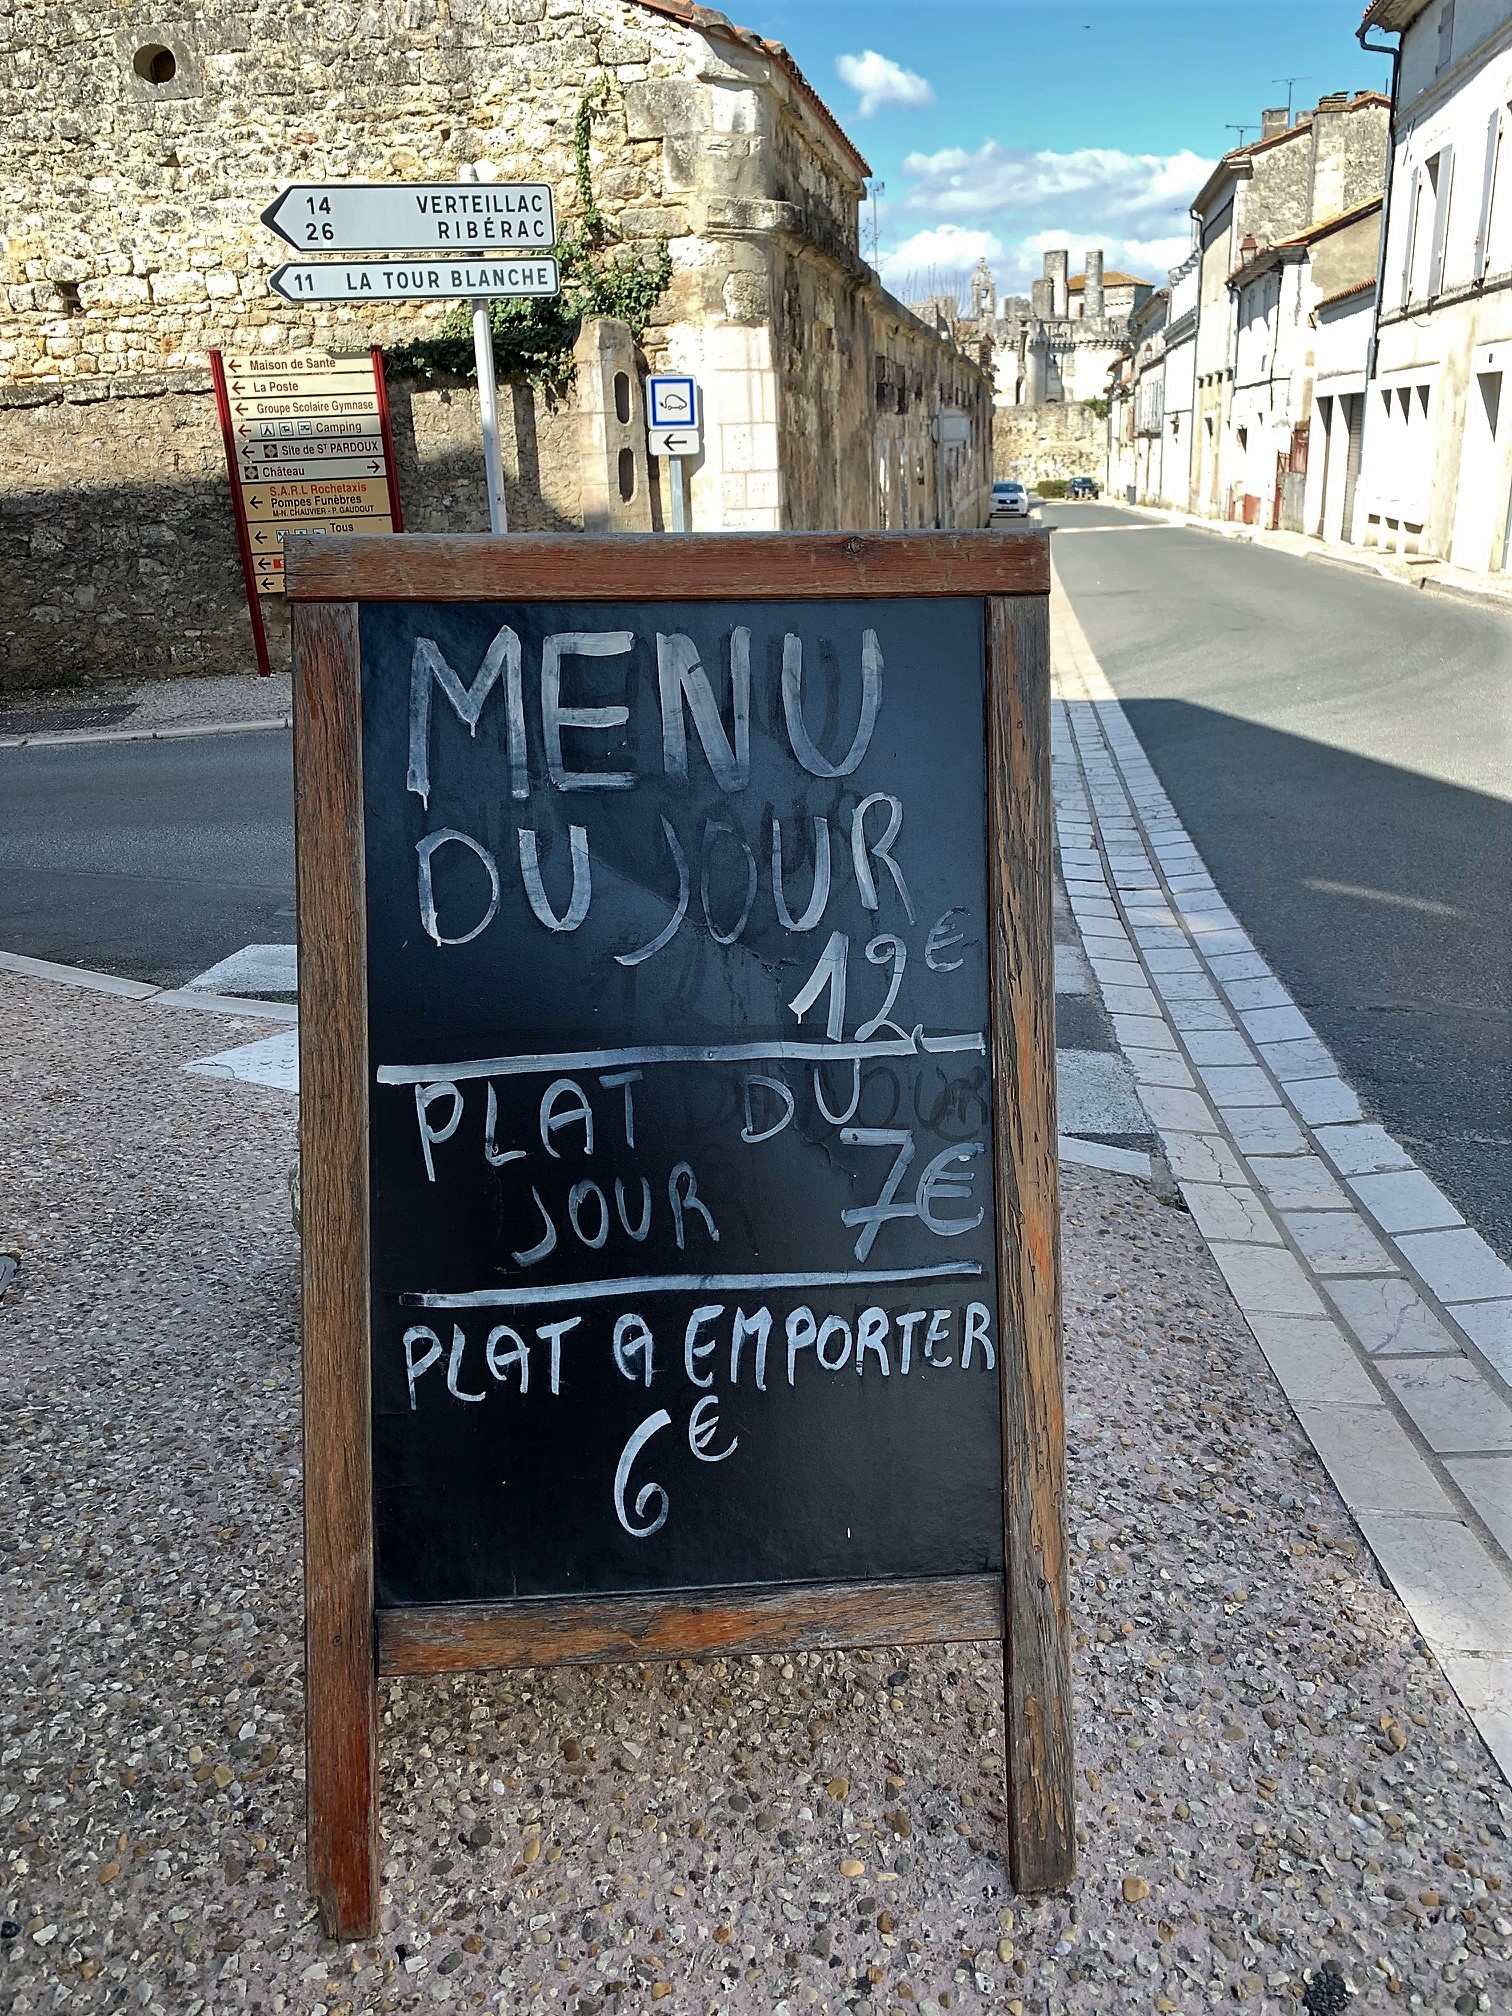 14 VERTEILLAC
26 RIBÉRAC
11 LA TOUR BLANCHE
Maison de Santé
La Poste
Groupe Scolaire Gymnase
Camping
Site de ST PARDOUX
Château
S.A.R.L Rochetaxis
Pompes Funèbres
M-N. CHAUVIER - P. GAUDOUT
Tous
MENU
DU JOUR
12€
PLAT DU
JOUR 7€
PLAT A EMPORTER
6€